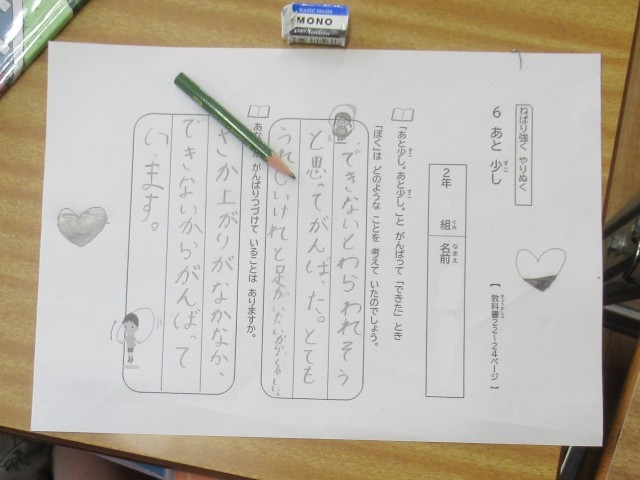 ねばり強く やりぬく
6 あと 少し
すこ
【 教科書22～24ページ 】
きょうかしょ
2年 組 名前
くみ
なまえ
「あと少し。あと少し。」と がんばって 「できた」 とき
すこ
すこ
「ぼく」は どのような ことを 考えて いたのでしょう。
かんが
できないとわらわれそう
と思ってがんばった。とても
うれしいけれど足が
がんばりつづけて いることは ありますか。
さか上がりがなかなか、
できないからがんばって
います。
PLASTIC ERASER
MONO